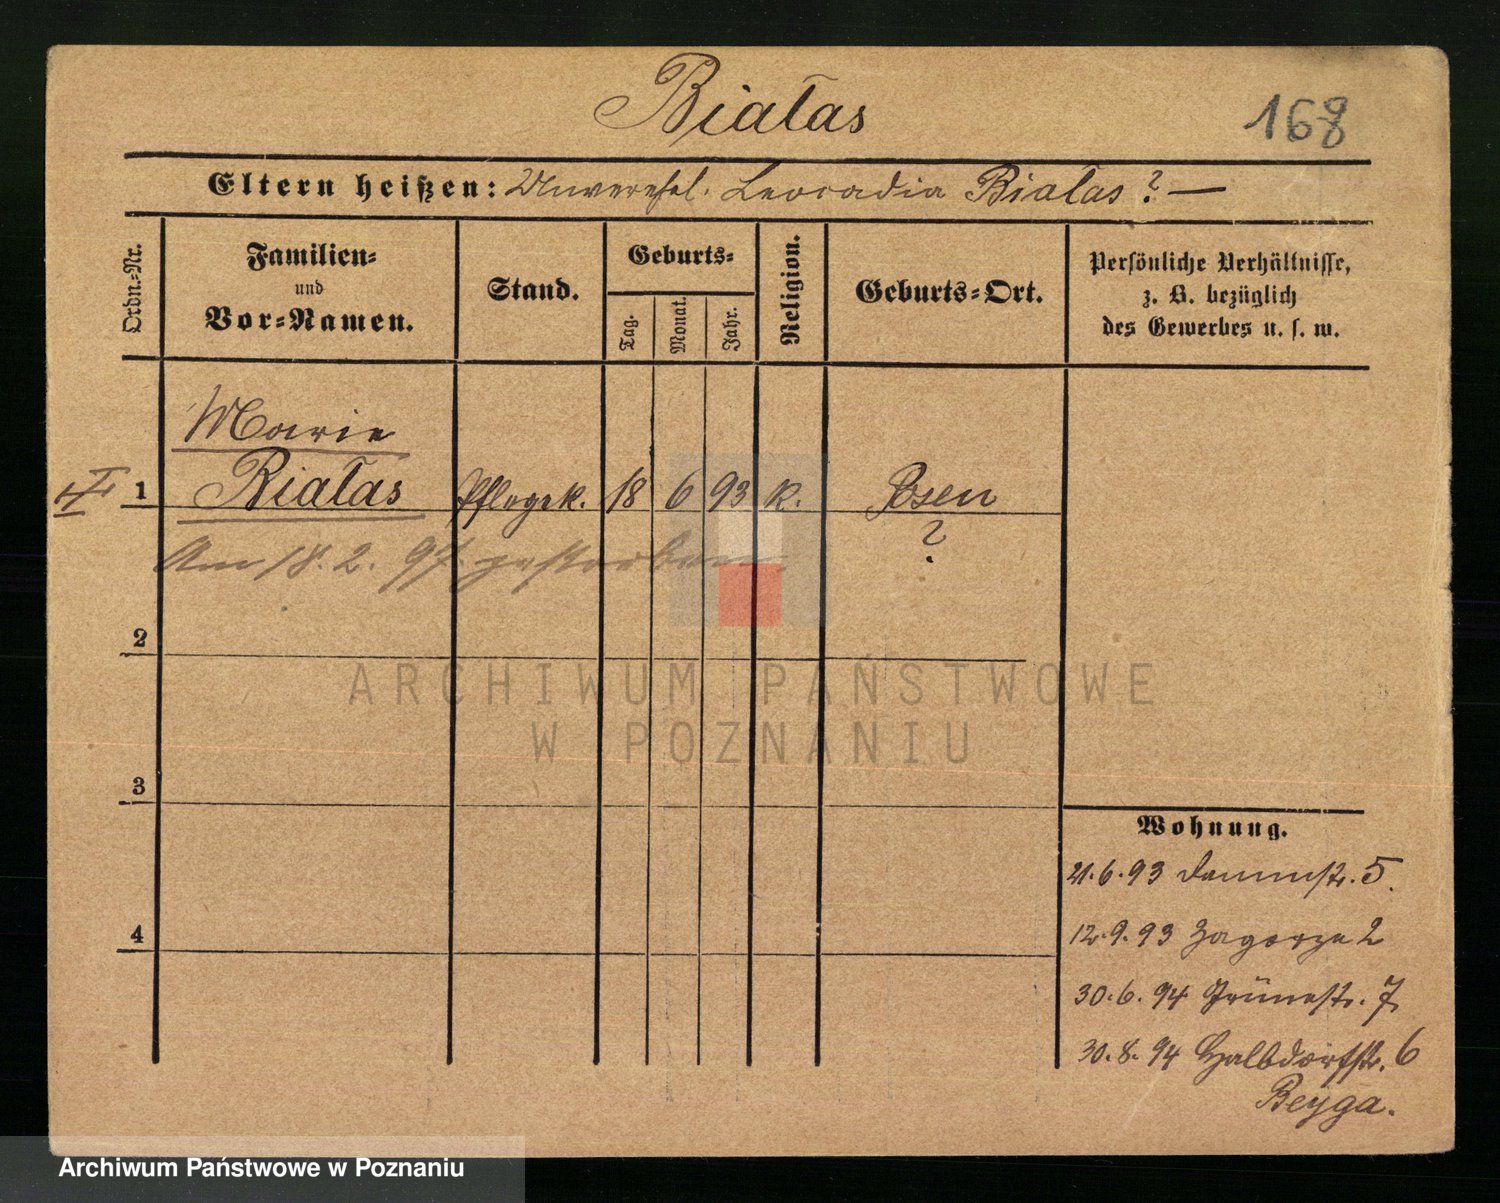 Białas
168
Eltern heißen: Unverehel. Leocadia Białas ? —
Ordn.-Nr.
Familien-
und
Vor-Namen.
Stand.
Geburts-
Tag.
Monat.
Jahr.
Religion.
Geburts-Ort.
Persönliche Verhältnisse,
z. B. bezüglich
des Gewerbes u. s. w.
Marie
1 Białas Pflegek. 18 6 93 k. Posen
?
Am 18. 2. 97. gestorben
2
3
4
Wohnung.
21.6.93 Dammstr. 5.
12.9.93 Zagorze 2
30.6.94 Grünestr. 7
30.8.94 Halbdorfstr. 6
Beyga.
ARCHIWUM PAŃSTWOWE
W POZNANIU
Archiwum Państwowe w Poznaniu